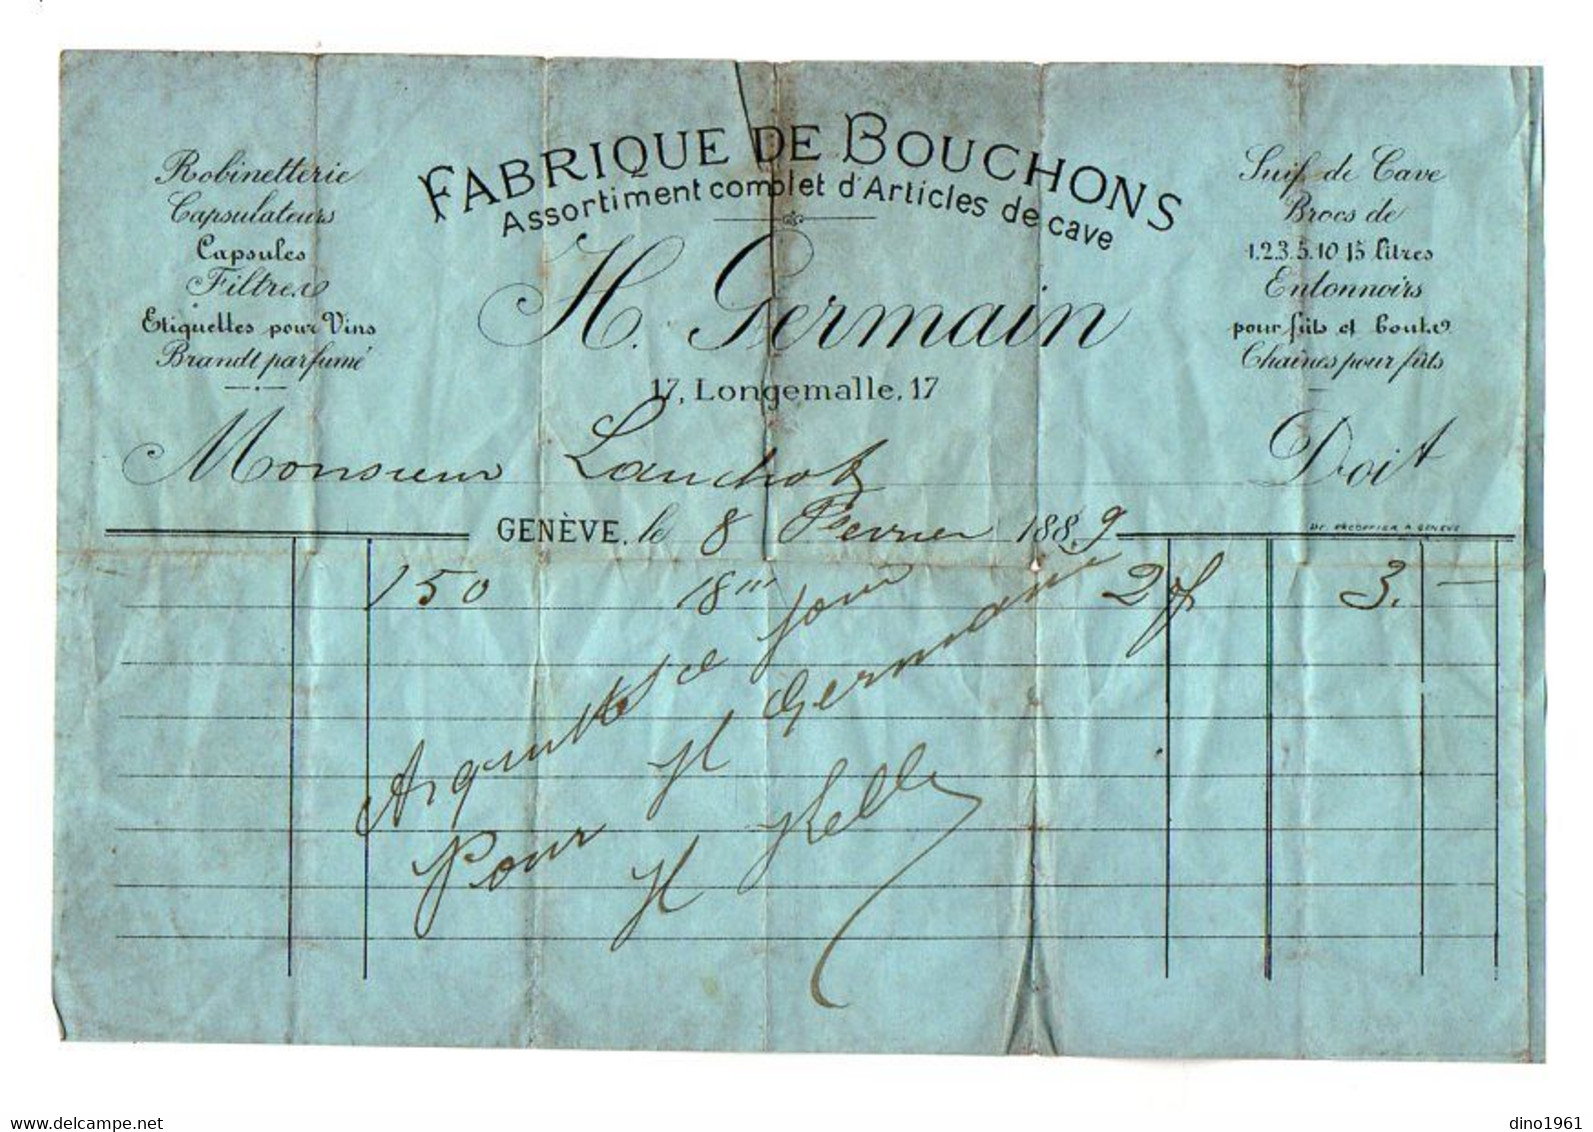 FABRIQUE DE BOUCHONS
Assortiment complet d'Articles de cave
H. Germain
17, Longemalle, 17
Robinetterie
Capsulateurs
Capsules
Filtres
Etiquettes pour Vins
Brandt parfumé
Suif de Cave
Brocs de
1.2.3.5.10 15 litres
Entonnoirs
pour fûts et boutes
Chaînes pour fûts
Monsieur Doit
GENÈVE, le 8 Fevrier 1889
150 18''' 2 3. —
ce jour
Pour H Germain
H Kell
delcampe.net
dino1961